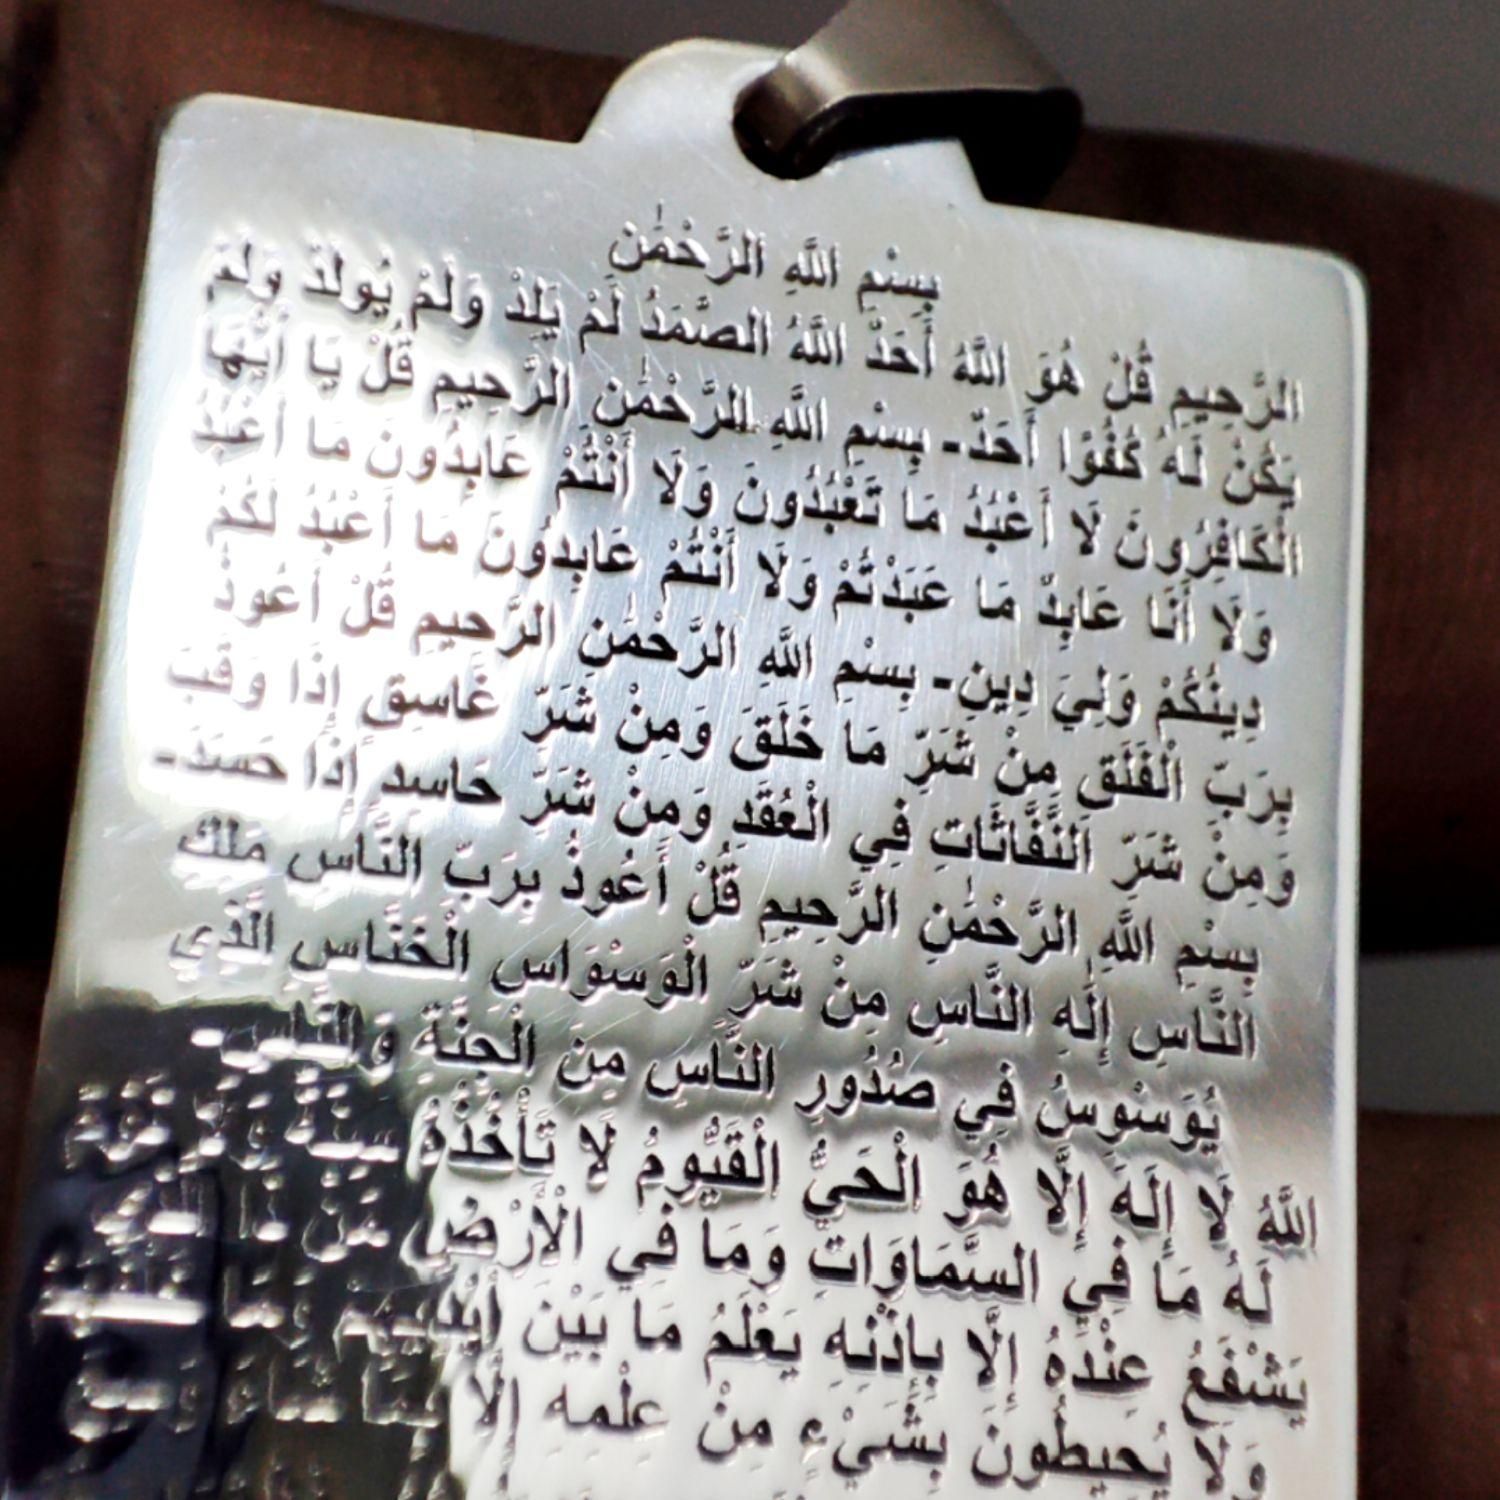 بِسْمِ اللَّهِ الرَّحْمَٰنِ
الرَّحِيمِ قُلْ هُوَ اللَّهُ أَحَدٌ اللَّهُ الصَّمَدُ لَمْ يَلِدْ وَلَمْ يُولَدْ وَلَمْ
يَكُنْ لَهُ كُفُوًا أَحَدٌ- بِسْمِ اللَّهِ الرَّحْمَٰنِ الرَّحِيمِ قُلْ يَا أَيُّهَا
الْكَافِرُونَ لَا أَعْبُدُ مَا تَعْبُدُونَ وَلَا أَنْتُمْ عَابِدُونَ مَا أَعْبُدُ
وَلَا أَنَا عَابِدٌ مَا عَبَدْتُمْ وَلَا أَنْتُمْ عَابِدُونَ مَا أَعْبُدُ لَكُمْ
دِينُكُمْ وَلِيَ دِينِ- بِسْمِ اللَّهِ الرَّحْمَٰنِ الرَّحِيمِ قُلْ أَعُوذُ
بِرَبِّ الْفَلَقِ مِنْ شَرِّ مَا خَلَقَ وَمِنْ شَرِّ غَاسِقٍ إِذَا وَقَبَ
وَمِنْ شَرِّ النَّفَّاثَاتِ فِي الْعُقَدِ وَمِنْ شَرِّ حَاسِدٍ إِذَا حَسَدَ-
بِسْمِ اللَّهِ الرَّحْمَٰنِ الرَّحِيمِ قُلْ أَعُوذُ بِرَبِّ النَّاسِ مَلِكِ
النَّاسِ إِلَٰهِ النَّاسِ مِنْ شَرِّ الْوَسْوَاسِ الْخَنَّاسِ الَّذِي
يُوَسْوِسُ فِي صُدُورِ النَّاسِ مِنَ الْجِنَّةِ وَالنَّاسِ-
اللَّهُ لَا إِلَٰهَ إِلَّا هُوَ الْحَيُّ الْقَيُّومُ لَا تَأْخُذُهُ سِنَةٌ وَلَا نَوْمٌ
لَهُ مَا فِي السَّمَاوَاتِ وَمَا فِي الْأَرْضِ مَنْ ذَا الَّذِي
يَشْفَعُ عِنْدَهُ إِلَّا بِإِذْنِهِ يَعْلَمُ مَا بَيْنَ أَيْدِيهِمْ وَمَا خَلْفَهُمْ
وَلَا يُحِيطُونَ بِشَيْءٍ مِنْ عِلْمِهِ إِلَّا بِمَا شَاءَ وَسِعَ